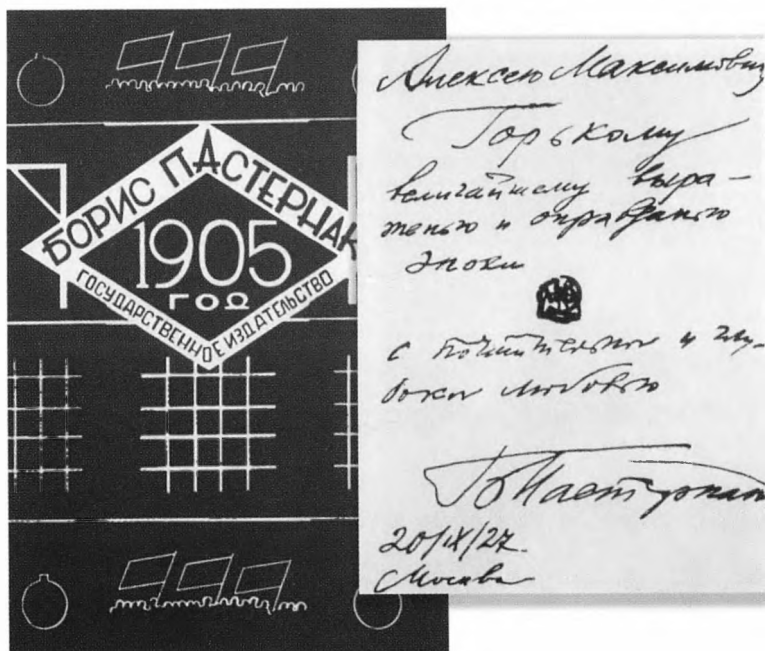 БОРИС ПАСТЕРНАК
1905
ГОД
ГОСУДАРСТВЕННОЕ ИЗДАТЕЛЬСТВО
Алексею Максимовичу
Горькому
величайшему выра-
женью и оправданью
эпохи
с почтительной и глу-
бокой любовью
Б Пастернак
20/IX/27.
Москва